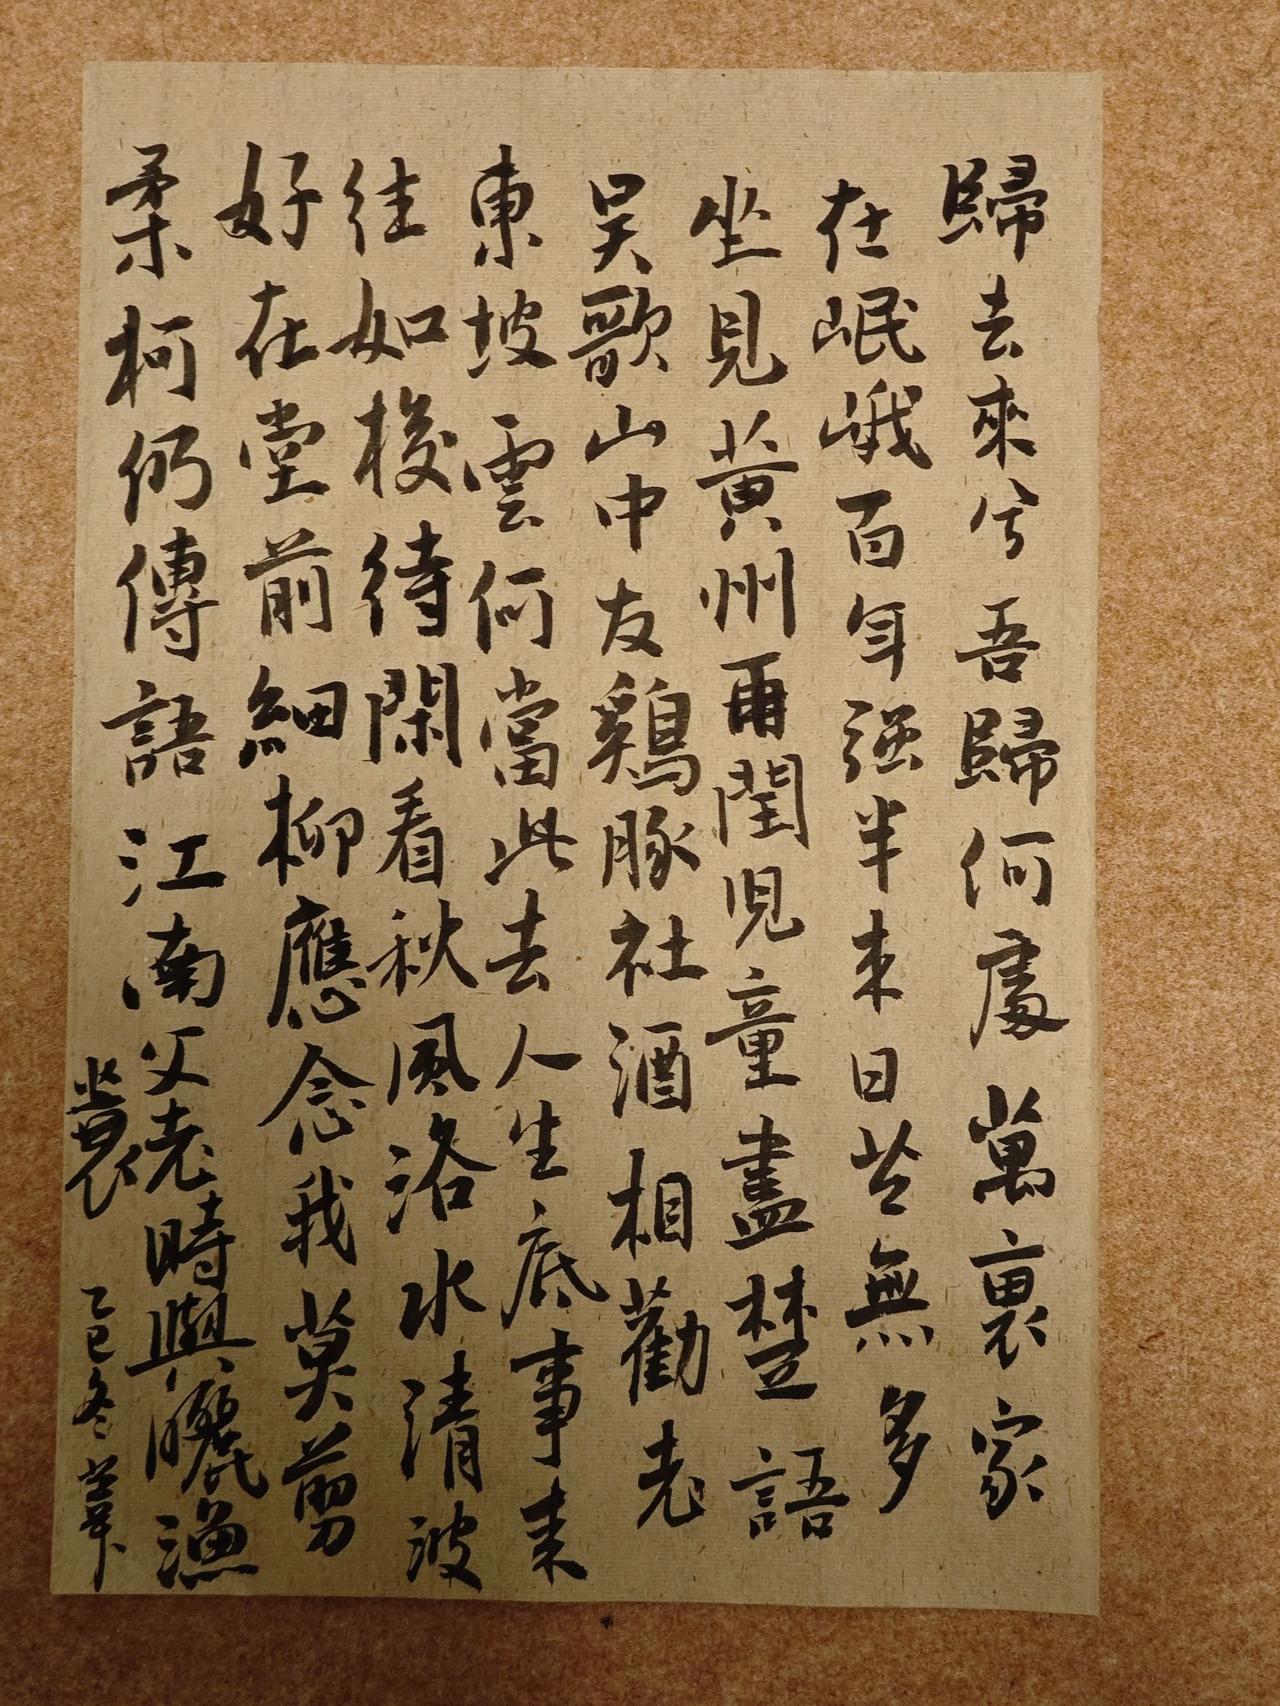 歸去來兮吾歸何處萬裏家
在岷峨百年强半来日苦無多
坐見黃州再閏児童盡楚語
吴歌山中友鷄豚社酒相勸老
東坡雲何當此去人生底事来
往如梭待閑看秋風洛水清波
好在堂前細柳應念我莫剪
柔柯仍傳語江南父老時與曬漁
蓑 乙巳冬 葦